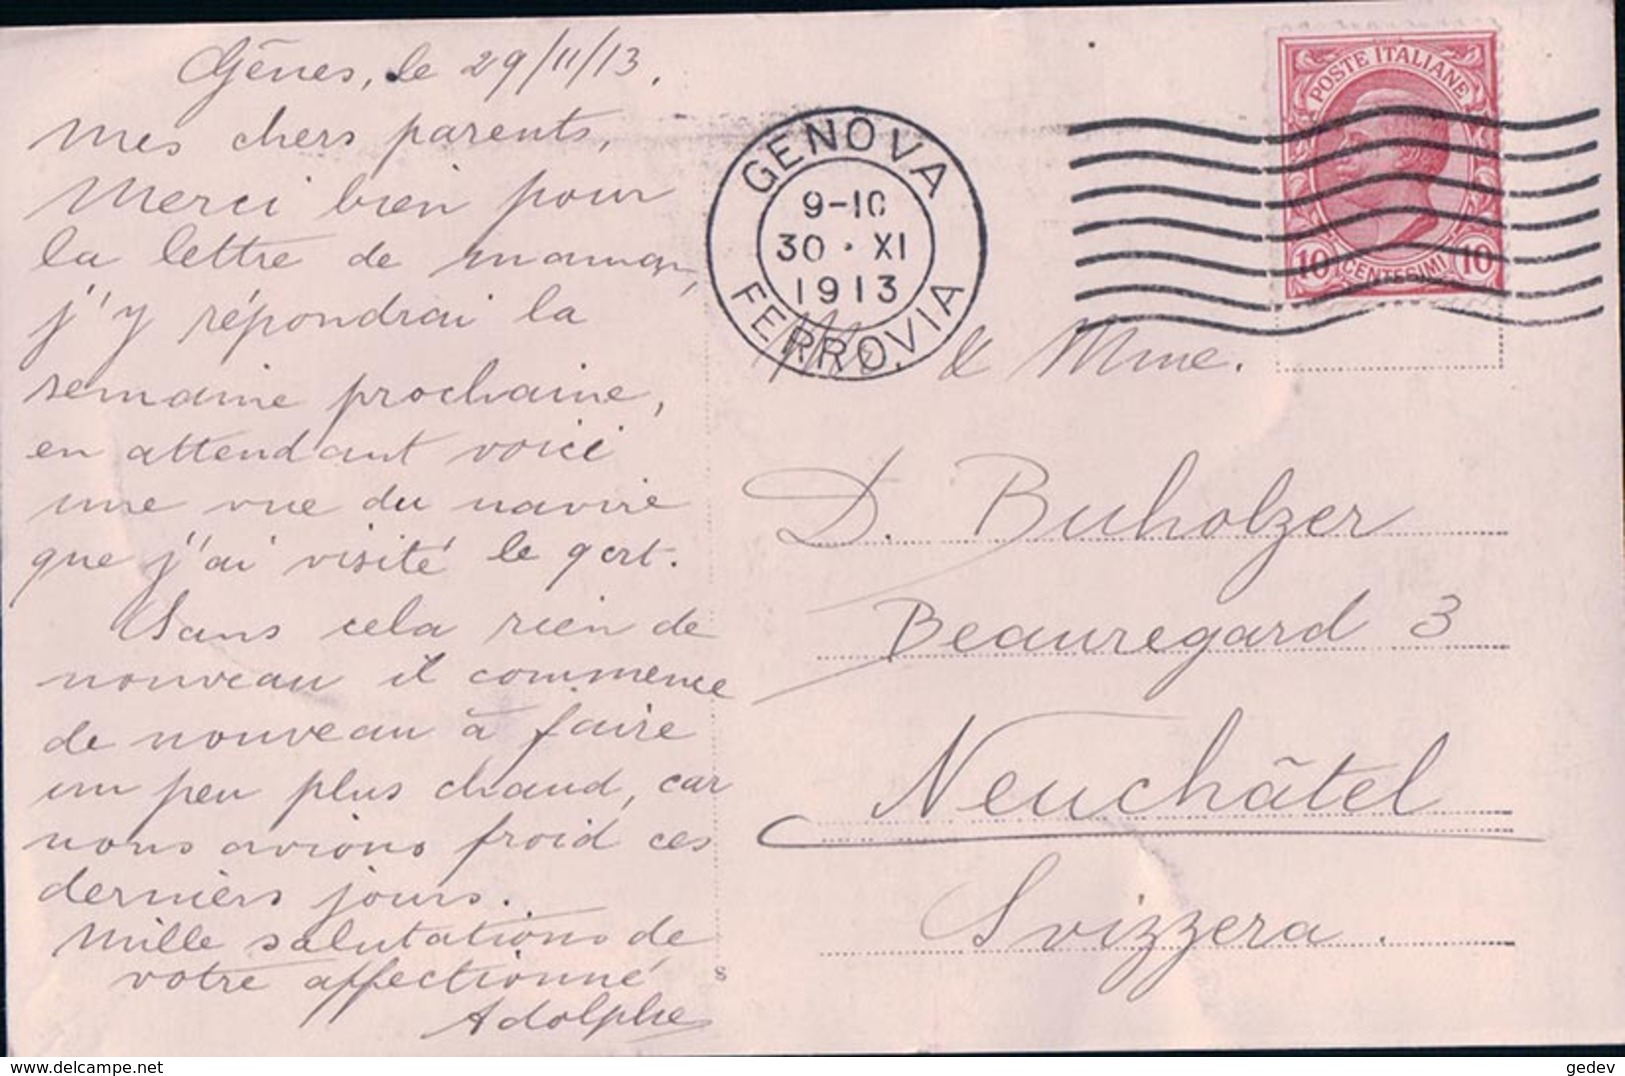 Gênes, le 29/11/13.
Mes chers parents,
Merci bien pour
la lettre de maman,
j'y répondrai la
semaine prochaine,
en attendant voici
une vue du navire
que j'ai visité le
Sans cela rien de
nouveau il commence
de nouveau à faire
un peu plus chaud, car
nous avions froid ces
derniers jours.
Mille salutations de
votre affectionné
Adolphe
8
GENOVA
9-10
30 · XI
1913
FERROVIA
POSTE ITALIANE
10 CENTESIMI 10
Mr. & Mme.
D. Buholzer
Beauregard 3
Neuchâtel
Svizzera.
gedev